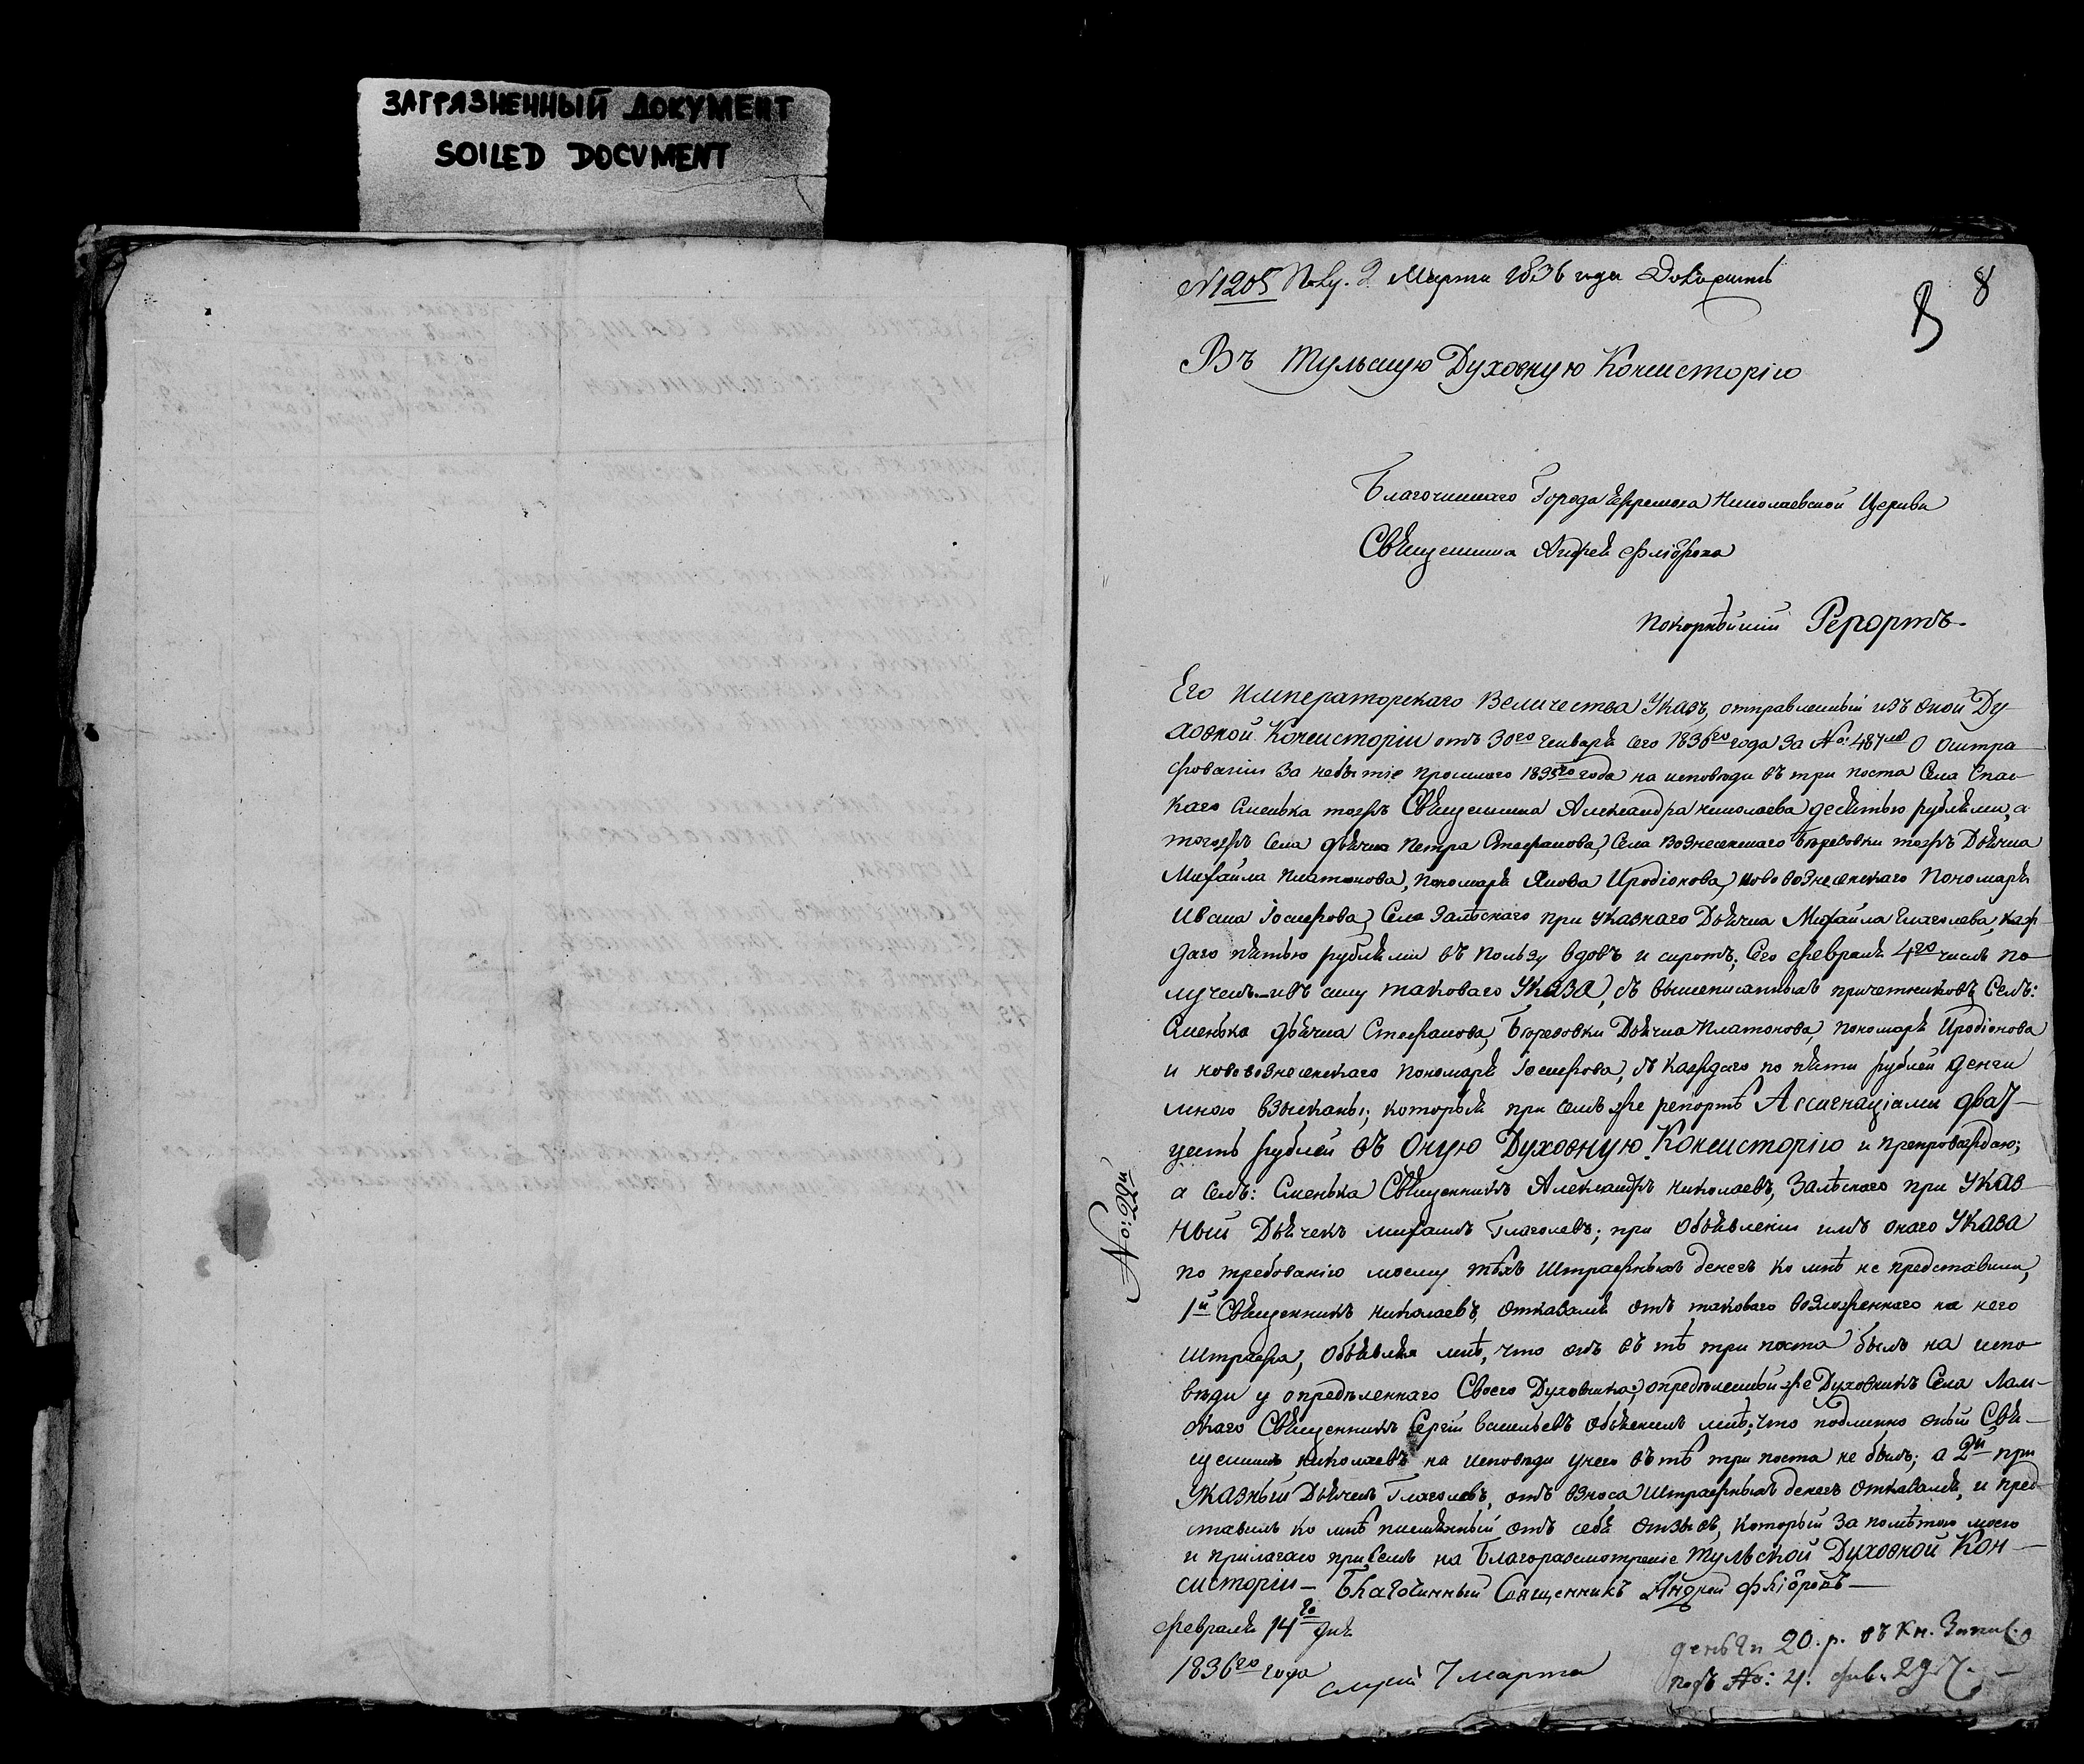 ЗАГРЯЗНЕННЫЙ ДОКУМЕНТ
SOILED DOCUMENT
№1205 Марта 1836 года
8 8
Въ Тульскую Духовную Консисторію
Благочиннаго Города Ефремова Николаевской Церкви
Священника Андрея Фліорова
покорнѣйшій Репортъ.
Его Императорскаго Величества Указъ, отправленный изъ оной Ду-
ховной Консисторіи отъ 30го Генваря сего 1836го года за №: 487мъ О оштра-
фованіи за небытіе прошлаго 1835го года на исповѣди въ три поста Села Спас-
каго тожъ Священника Александра Николаева десятью рублями, а
тогожъ Села дьячка Петра Стефанова, Села Вознесенскаго тожъ Дьячка
Михайла Платонова, пономаря Якова Иродіонова, нововознесенскаго Пономаря
Ивана Іосифова, Села Залѣскаго при указнаго Дьячка Михайла Глаголева, каж-
даго пятью рублями въ пользу вдовъ и сиротъ; Сего февраля 4го числа по-
лученъ. въ силу таковаго Указа, съ вышеписанныхъ причетниковъ Селъ:
дьячка Стефанова, Дьячка Платонова, пономаря Иродіонова
и нововознесенскаго пономаря Іосифова, съ каждаго по пяти рублей денги
мною взысканы; которыя при семъ же репортѣ Ассигнаціами двад-
цать рублей въ Оную Духовную Консисторію и препровождаю;
а Селъ: Священникъ Александръ Николаевъ, Залѣскаго при Указ-
ный Дьячекъ Михаилъ Глаголевъ; при Объявленіи имъ онаго Указа
по требованію моему тѣхъ Штрафныхъ денегъ ко мнѣ не представили,
1й Священникъ Николаевъ, отказался отъ таковаго возложеннаго на него
Штрафа, Объявляя мнѣ, что онъ въ тѣ три поста былъ на испо-
вѣди у опредѣленнаго Своего Духовника; опредѣленный же Духовникъ Села Лам-
скаго Священникъ Сергій Васильевъ объяснилъ мнѣ, что подлинно оный Свя-
щенникъ Николаевъ на исповѣди у него въ тѣ три поста не былъ; а 2й при
Указный Дьячекъ Глаголевъ, отъ взноса Штрафныхъ денегъ отказался, и пред-
ставилъ ко мнѣ писменный отъ себя отзывъ, который за помѣтою моею
и прилагаю при семъ на Благоразсмотреніе Тульской Духовной Кон-
систоріи — Благочинный Священникъ Андрей Фліоровъ —
февраля 14го дня
1836го года
7 марта
деньги 20. р. въ кн.
подъ №: 4. фев.
№: 22й